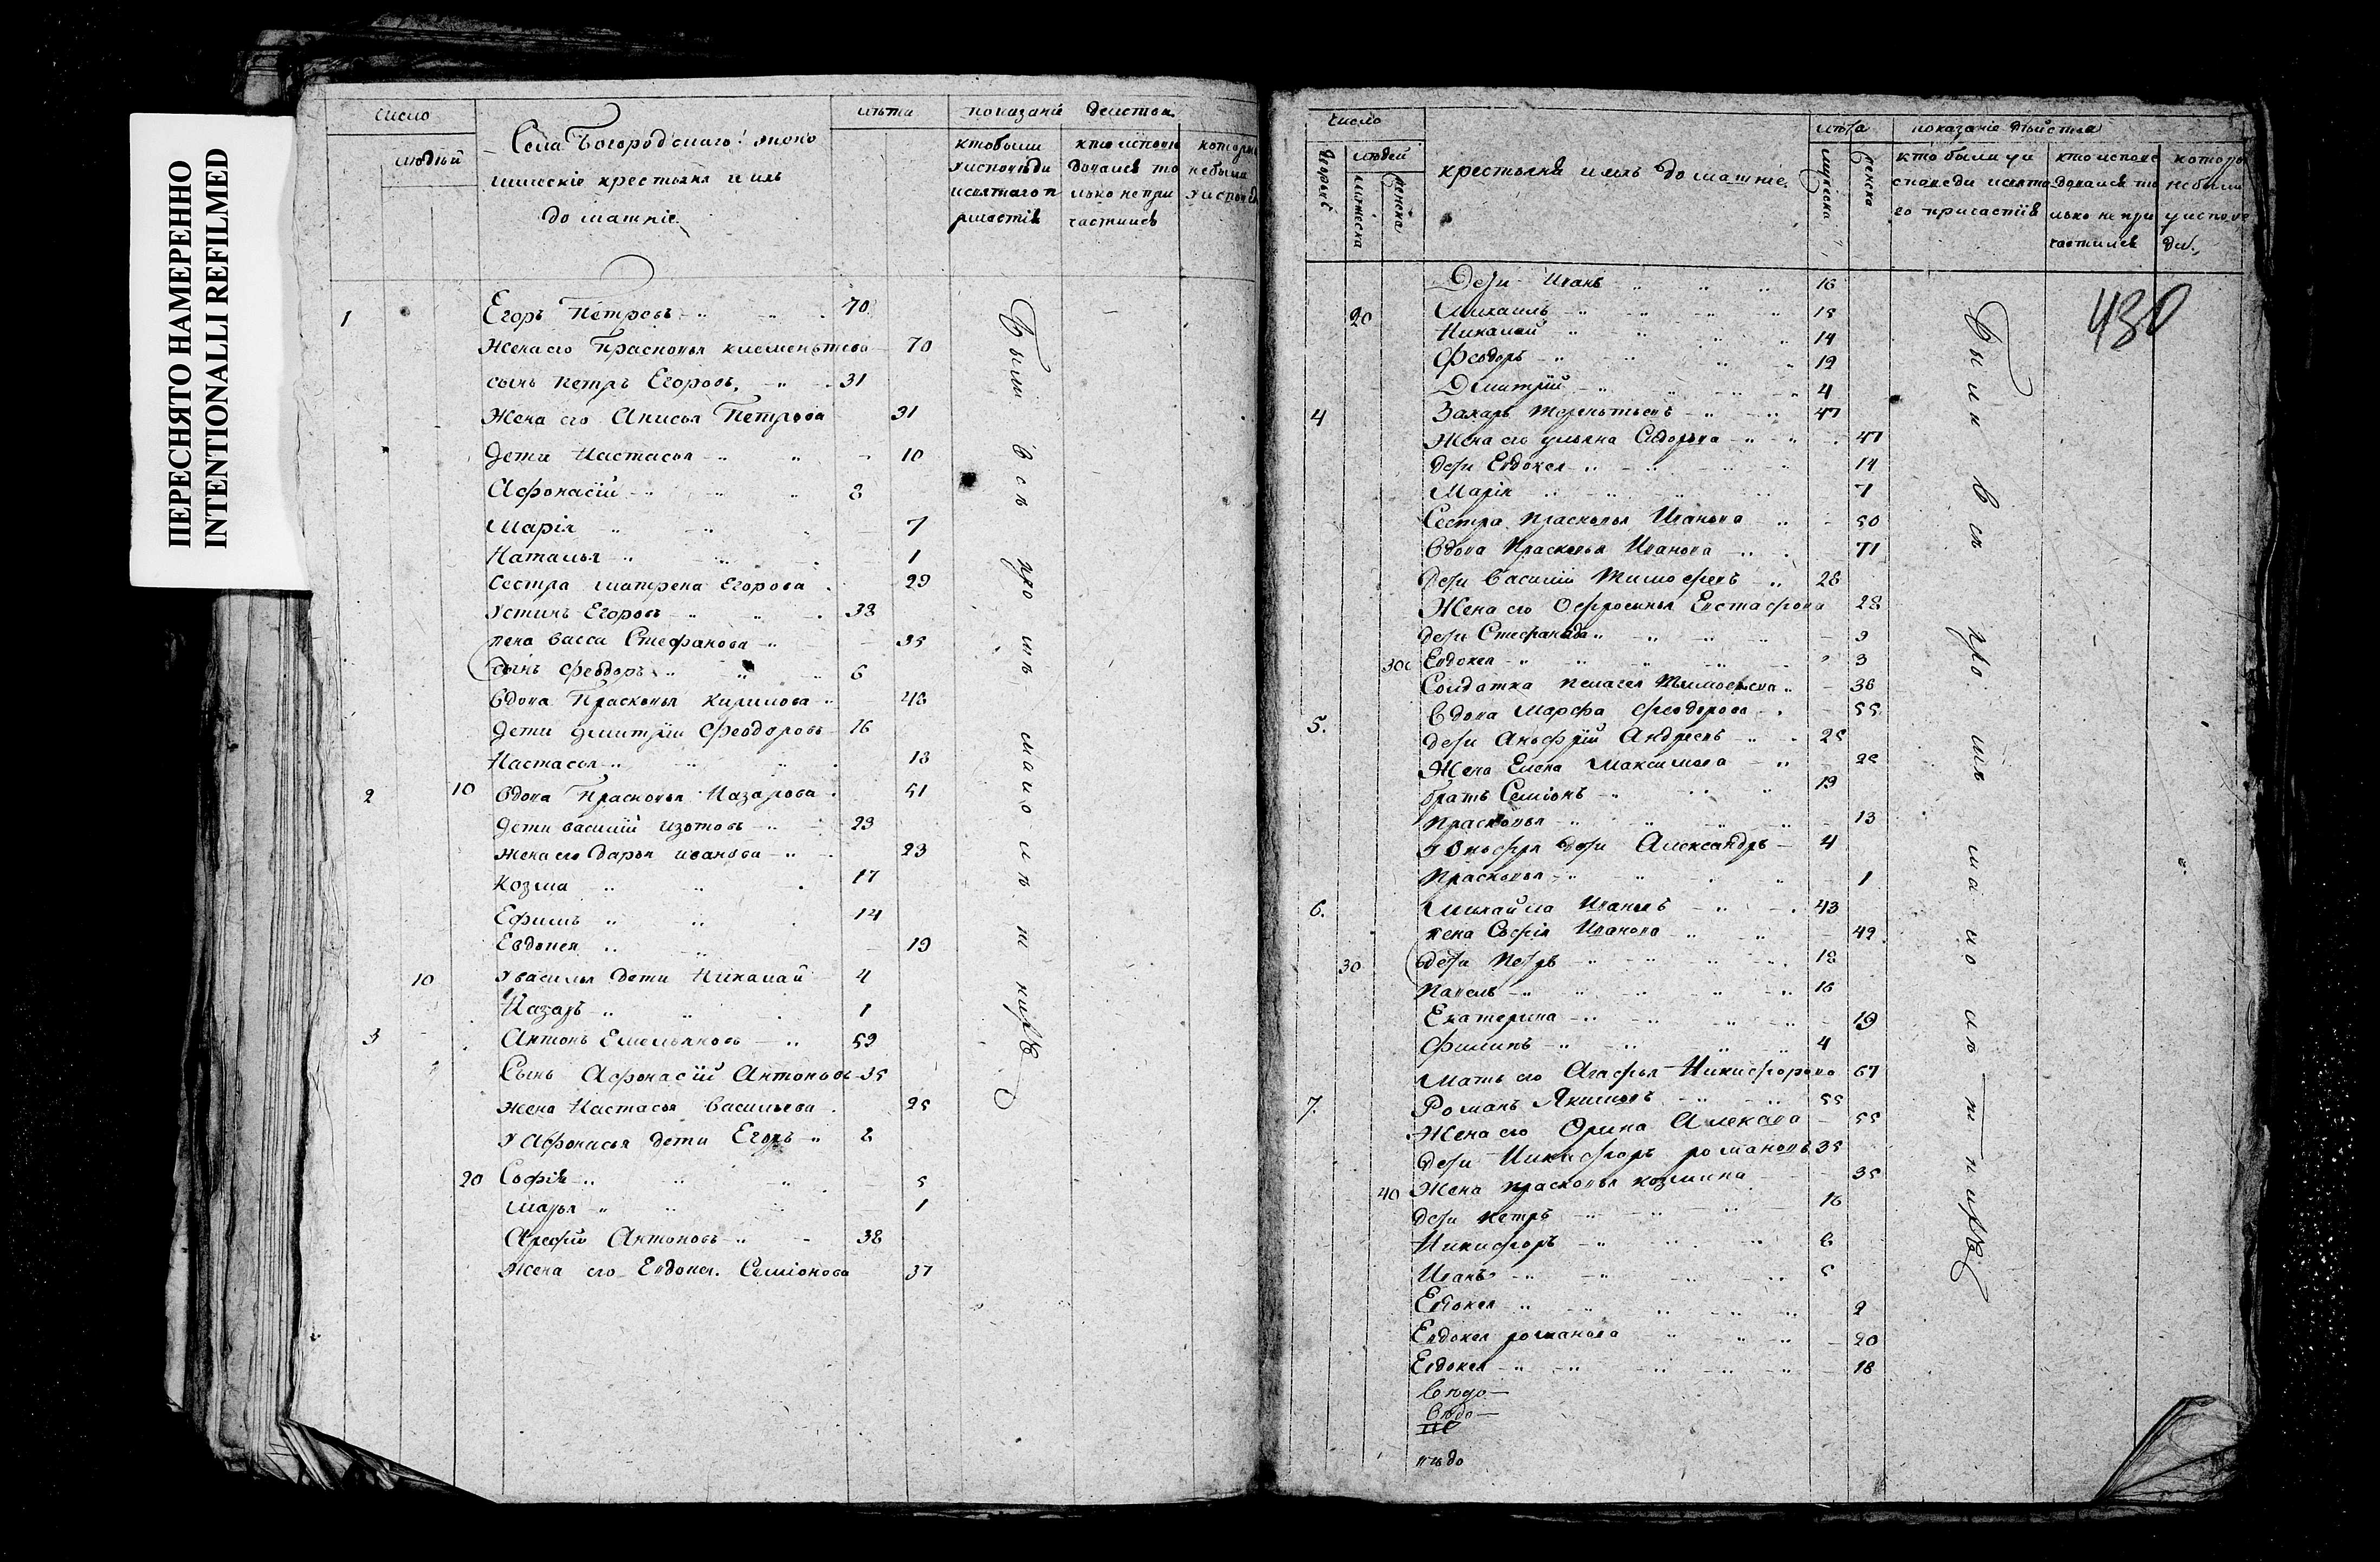 ПЕРЕСНЯТО НАМЕРЕННО
INTENTIONALLI REFILMED
число
людьй
Села Богородскаго: эконо
мическіе крестьяня и ихъ
домашніе
лѣта
показаніи действа
кто были
у исповѣди
и святаго п
ричастія
кто испов
довался то
лько не при
частился
которы
не были
у исповѣ
1 Егоръ Петровъ 70
Жена его Прасковья Клементьева 70
сынъ Петръ Егоровъ 31
Жена его Анисья Петрова 31
Дети Настасья 10
Афонасій 8
Марія 7
Наталья 1
Сестра Матрена Егорова 29
Устинъ Егоровъ 38
жена Васса Стефанова 35
сынъ Феодоръ 6
Вдова Прасковья Кирилова 48
Дети Дмитрій Феодоровъ 16
Настасья 18
2 10 Вдова Прасковья Назарова 51
Дети Василій Изотовъ 23
Жена его Дарья Иванова 23
Козма 17
Ефимъ 14
Евдокея 19
10 У Василья дети Николай 4
Назаръ 1
3 Антонъ Емельяновъ 59
Сынъ Афонасій Антоновъ 35
Жена Настасья Васильева 25
У Афонасья дети Егоръ 8
20 Софія 5
Марья 1
Арефій Антоновъ 38
Жена его Евдокея Семіонова 37
Были всѣ про мѣ мало лѣ т нихъ
число
дворовъ
людей
мужеска
женска
крестьяня и ихъ домашніе
лѣта
мужеска
женска
показаніе дѣйства
кто были у и
споведи и свята
го причастія
кто испове
довался то
лько не при
частился
которы
не были
у испове
ди
430
Дети Иванъ 16
20 Михаилъ 15
Николай 14
Феодоръ 12
Дмитрій 4
4 Захаръ Терентьевъ 47
Жена его Ульяна Сидорова 47
дети Евдокея 14
Марія 7
Сестра Прасковья Иванова 50
Вдова Прасковья Иванова 71
Дети Василій Тимофеевъ 28
Жена его Офросинья Евстафова 28
дети Стефанида 9
30 Евдокея 3
Солдатка Пелагея Тимофеева 36
5. Вдова Марфа Феодорова 55
дети Аньофрій Андреевъ 25
Жена Елена Максимова 26
братъ Семіонъ 19
Прасковья 13
У Оньофрія дети Александръ 4
Прасковья 1
6. Михайла Ивановъ 43
жена Софія Иванова 42
30 Дети Петръ 18
Павелъ 16
Екатерина 19
Филипъ 4
Мать его Агафья Никифорова 67
7. Романъ Якимовъ 55
Жена его Орина Алексева 55
Дети Никифоръ Романовъ 35
40 Жена Прасковья Козмина 35
дети Петръ 16
Никифоръ 8
Иванъ 5
Евдокея 2
Евдокея Романова 20
Евдокея 18
вѣдо
пѣдо
Были всѣ про мѣ мало лѣ т нихъ